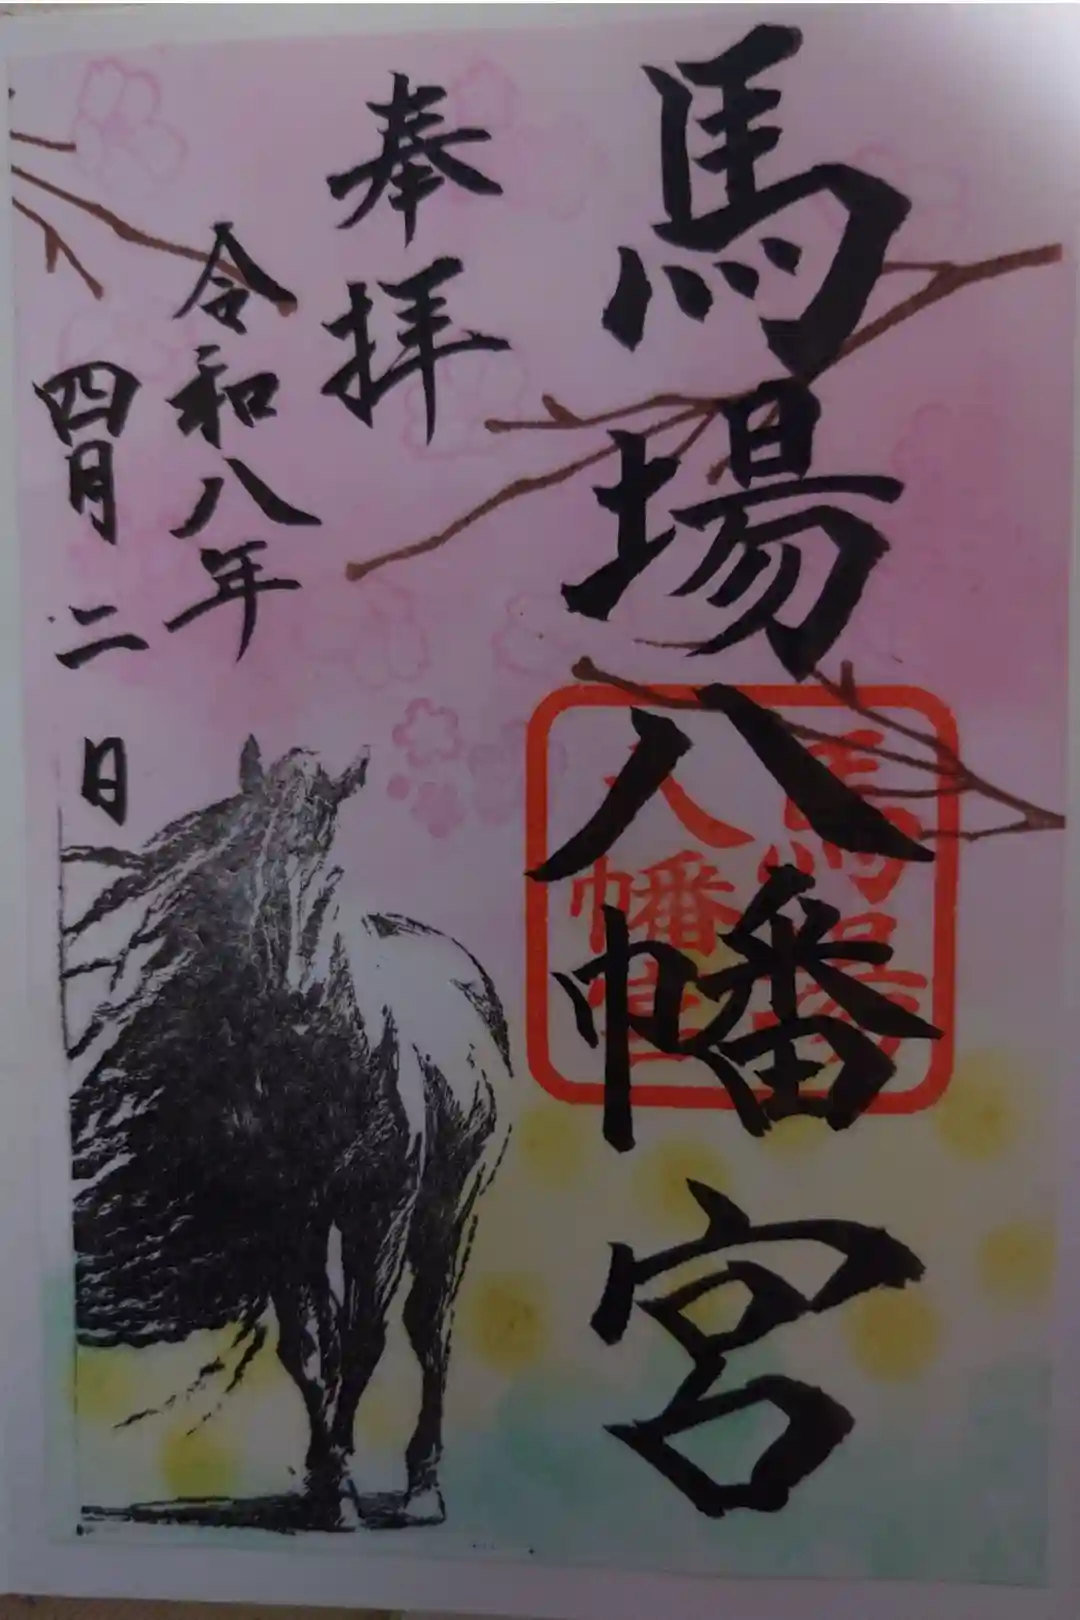 馬場八幡宮
奉拝
令和八年
四月二日
馬場
八幡宮